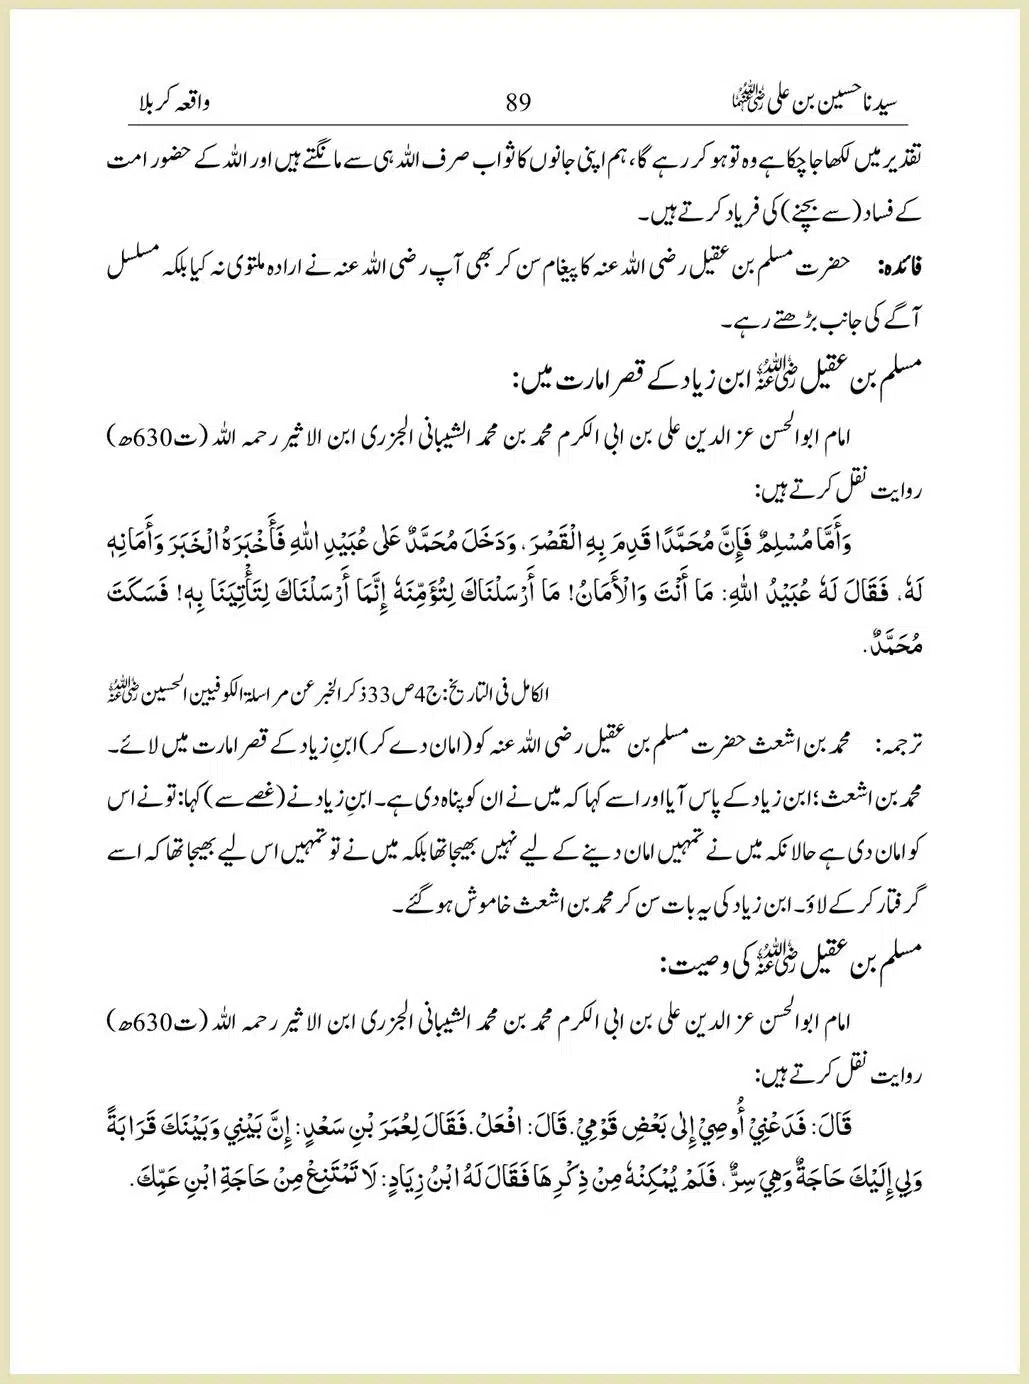 سیدنا حسین بن علی رضی اللہ عنہما 89 واقعہ کربلا
تقدیر میں لکھا جا چکا ہے وہ تو ہو کر رہے گا، ہم اپنی جانوں کا ثواب صرف اللہ ہی سے مانگتے ہیں اور اللہ کے حضور امت
کے فساد (سے بچنے) کی فریاد کرتے ہیں۔
فائدہ: حضرت مسلم بن عقیل رضی اللہ عنہ کا پیغام سن کر بھی آپ رضی اللہ عنہ نے ارادہ ملتوی نہ کیا بلکہ مسلسل
آگے کی جانب بڑھتے رہے۔
مسلم بن عقیل رضی اللہ عنہ ابن زیاد کے قصر امارت میں:
امام ابوالحسن عز الدین علی بن ابی الکرم محمد بن محمد الشیبانی الجزری ابن الاثیر رحمہ اللہ (ت630ھ)
روایت نقل کرتے ہیں:
وَأَمَّا مُسْلِمٌ فَإِنَّ مُحَمَّدًا قَدِمَ بِهِ الْقَصْرَ، وَدَخَلَ مُحَمَّدٌ عَلٰى عُبَيْدِ اللهِ فَأَخْبَرَهُ الْخَبَرَ وَأَمَانِهٖ
لَهٗ، فَقَالَ لَهٗ عُبَيْدُ اللهِ: مَا أَنْتَ وَالْأَمَانُ! مَا أَرْسَلْنَاكَ لِتُؤَمِّنَهٗ إِنَّمَا أَرْسَلْنَاكَ لِتَأْتِيَنَا بِهٖ! فَسَكَتَ
مُحَمَّدٌ.
الکامل فی التاریخ: ج4ص33 ذکر الخبر عن مراسلۃ الکوفیین الحسین رضی اللہ عنہ
ترجمہ: محمد بن اشعث حضرت مسلم بن عقیل رضی اللہ عنہ کو (امان دے کر) ابنِ زیاد کے قصر امارت میں لائے۔
محمد بن اشعث؛ ابن زیاد کے پاس آیا اور اسے کہا کہ میں نے ان کو پناہ دی ہے۔ ابنِ زیاد نے (غصے سے) کہا: تو نے اس
کو امان دی ہے حالانکہ میں نے تمہیں امان دینے کے لیے نہیں بھیجا تھا بلکہ میں نے تو تمہیں اس لیے بھیجا تھا کہ اسے
گرفتار کر کے لاؤ۔ ابن زیاد کی یہ بات سن کر محمد بن اشعث خاموش ہو گئے۔
مسلم بن عقیل رضی اللہ عنہ کی وصیت:
امام ابوالحسن عز الدین علی بن ابی الکرم محمد بن محمد الشیبانی الجزری ابن الاثیر رحمہ اللہ (ت630ھ)
روایت نقل کرتے ہیں:
قَالَ: فَدَعْنِيْ أُوصِيْ إِلٰى بَعْضِ قَوْمِيْ. قَالَ: افْعَلْ. فَقَالَ لِعُمَرَ بْنِ سَعْدٍ: إِنَّ بَيْنِي وَبَيْنَكَ قَرَابَةً
وَلِي إِلَيْكَ حَاجَةٌ وَهِيَ سِرٌّ، فَلَمْ يُمْكِنْهُ مِنْ ذِكْرِهَا فَقَالَ لَهُ ابْنُ زِيَادٍ: لَا تَمْتَنِعْ مِنْ حَاجَةِ ابْنِ عَمِّكَ.